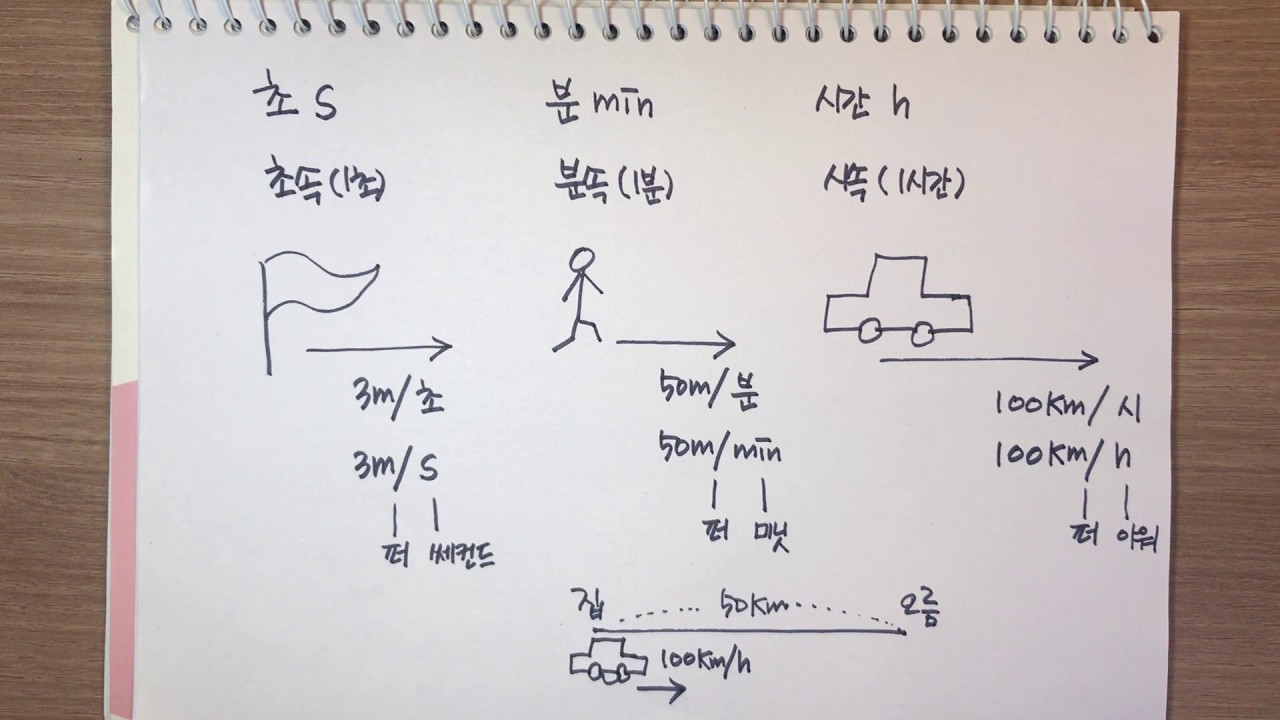 초 S
분 min
시간 h
초속 (1초)
분속 (1분)
시속 (1시간)
3m/초
3m/S
퍼 쎄컨드
50m/분
50m/min
퍼 미닛
100Km/시
100Km/h
퍼 아워
집 50Km 오름
100Km/h